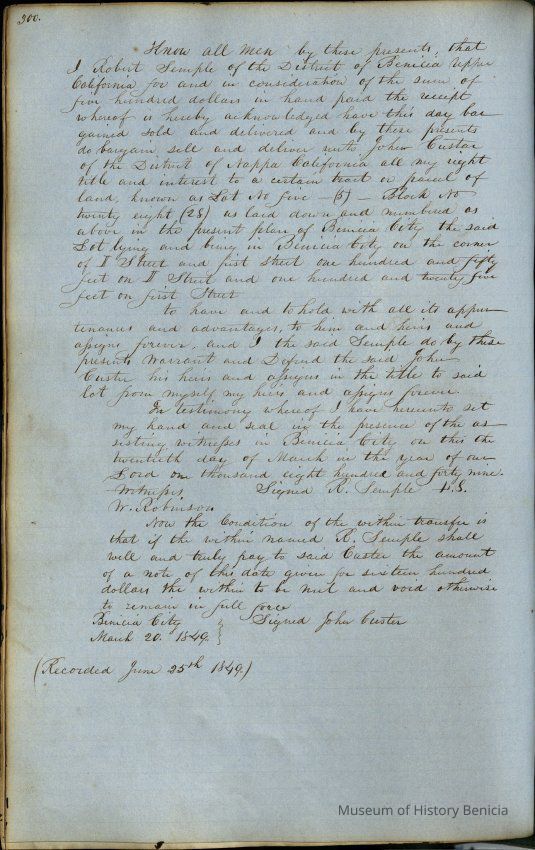 300.
Know all men by these presents, that
I Robert Semple of the District of Benicia Uppe
California for and in consideration of the sum of
five hundred dollars in hand paid the receipt
whereof is hereby acknowledged have this day bar
gained sold and delivered and by these presents
do bargain sell and deliver unto John Custar
of the District of Nappa California all my right
title and interest to a certain tract or parcel of
land, known as Lot No five — (5) — Block No
twenty eight (28) as laid down and numbered as
above in the present plan of Benicia City the said
Lot lying and being in Benicia City on the corner
of I Street and first street one hundred and fifty
feet on I Street and one hundred and twenty five
feet on first Street
to have and to hold with all its appur
tenances and advantages, to him and heirs and
assigns forever, and I the said Semple do by these
presents Warrant and Defend the said John
Custer his heirs and assigns in the title to said
lot from myself my heirs and assigns forever.
In testimony whereof I have hereunto set
my hand and seal in the presence of the as
sisting witnesses in Benicia City on this the
twentieth day of March in the year of our
Lord one thousand eight hundred and forty nine.
Witness, Signed R. Semple L.S.
W. Robinson
Now the Condition of the within transfer is
that if the within named R. Semple shall
well and truly pay to said Custer the amount
of a note of this date given for sixteen hundred
dollars the within to be null and void otherwise
to remain in full force
Benicia City } Signed John Custer
March 20. 1849.
(Recorded June 25th 1849.)
Museum of History Benicia